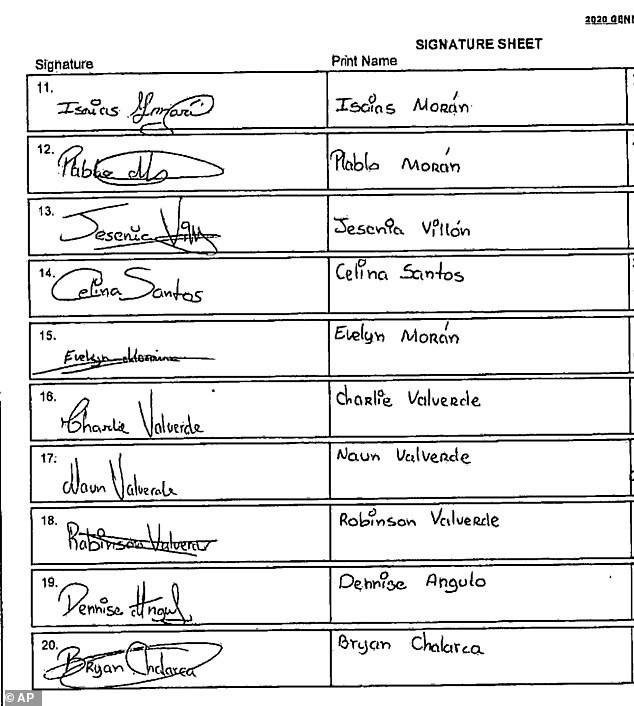 2020 GENE
SIGNATURE SHEET
Signature Print Name
11. Isaias Isaias Morán
12. Pablo Plablo Morán
13. Jesenia Jesenia Villón
14. Celina Santos Celina Santos
15. Evelyn Evelyn Morán
16. Charlie Valverde Charlie Valverde
17. Naun Valverde Naun Valverde
18. Robinson Valverde Robinson Valverde
19. Dennise Angulo Dennise Angulo
20. Bryan Chalarca Bryan Chalarca
© AP